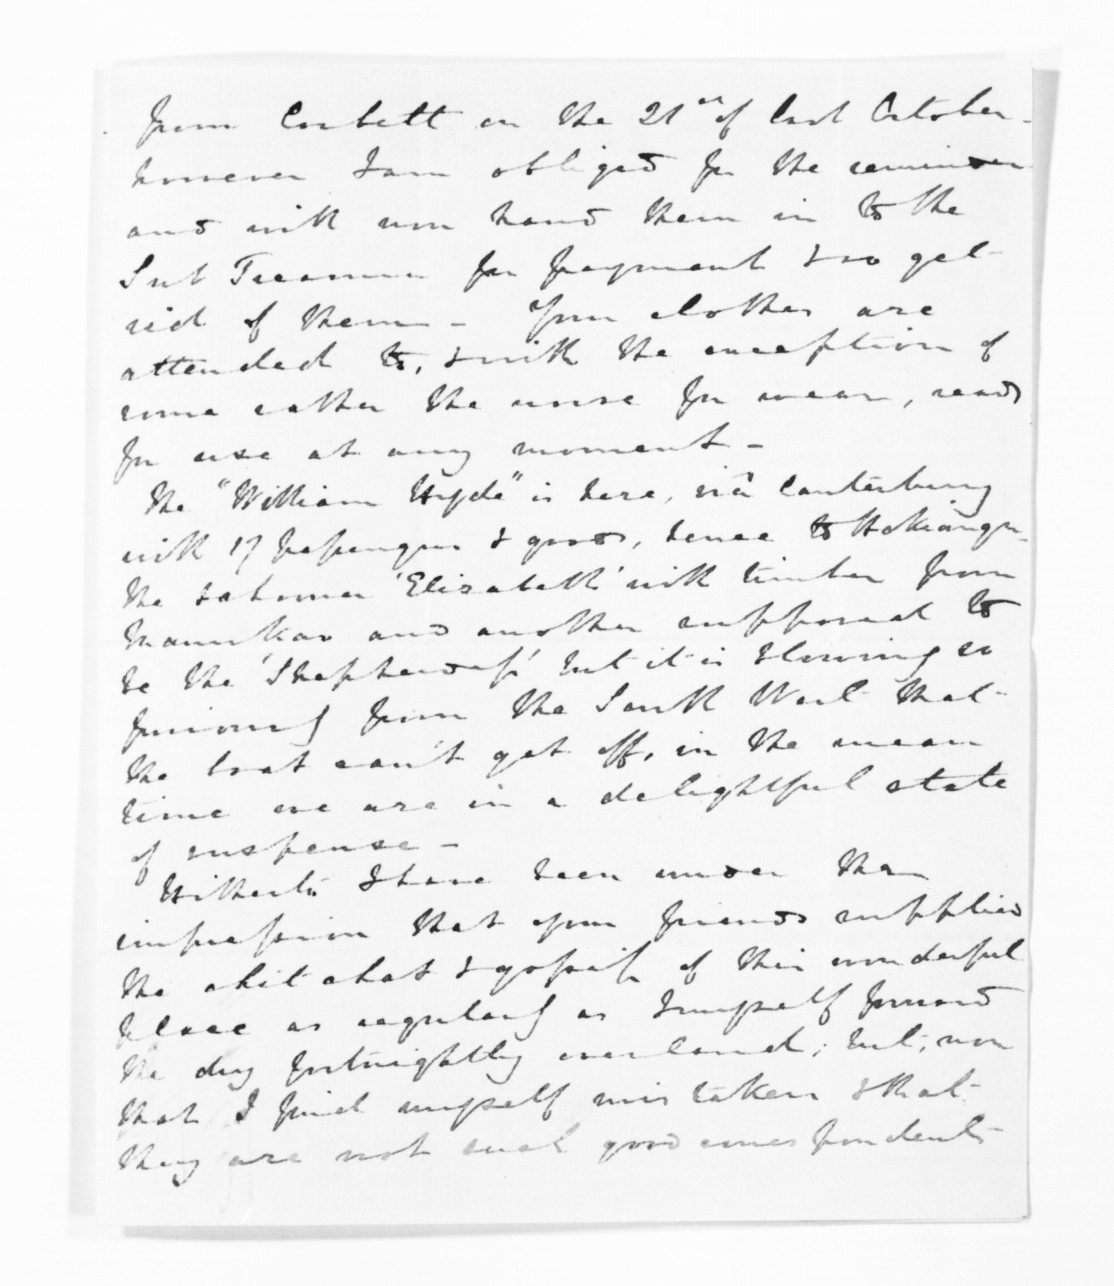 from Corbett on the 21st of last October -
however I am obliged for the reminder
and will now hand them in to the
Sub Treasurer for payment & so get
rid of them - Your clothes are
attended to, & with the exception of
some rather the worse for wear, ready
for use at any moment -
The "William Hyde" is here, viâ Canterbury
with 17 passengers & goods, hence to Hokianga -
the schooner 'Elizabeth' with timber from
Manukao and another supposed to
be the 'Shepherdess' but it is blowing so
furiously from the South West that
the boat can't get off, in the mean
time we are in a delightful state
of suspense -
Hitherto I have been under the
impression that your friends supplied
the chit chat & gossip of this wonderful
place as regularly as I myself forward
the dry fortnightly overland; but, now
that I find myself mistaken & that
they are not such good correspondents